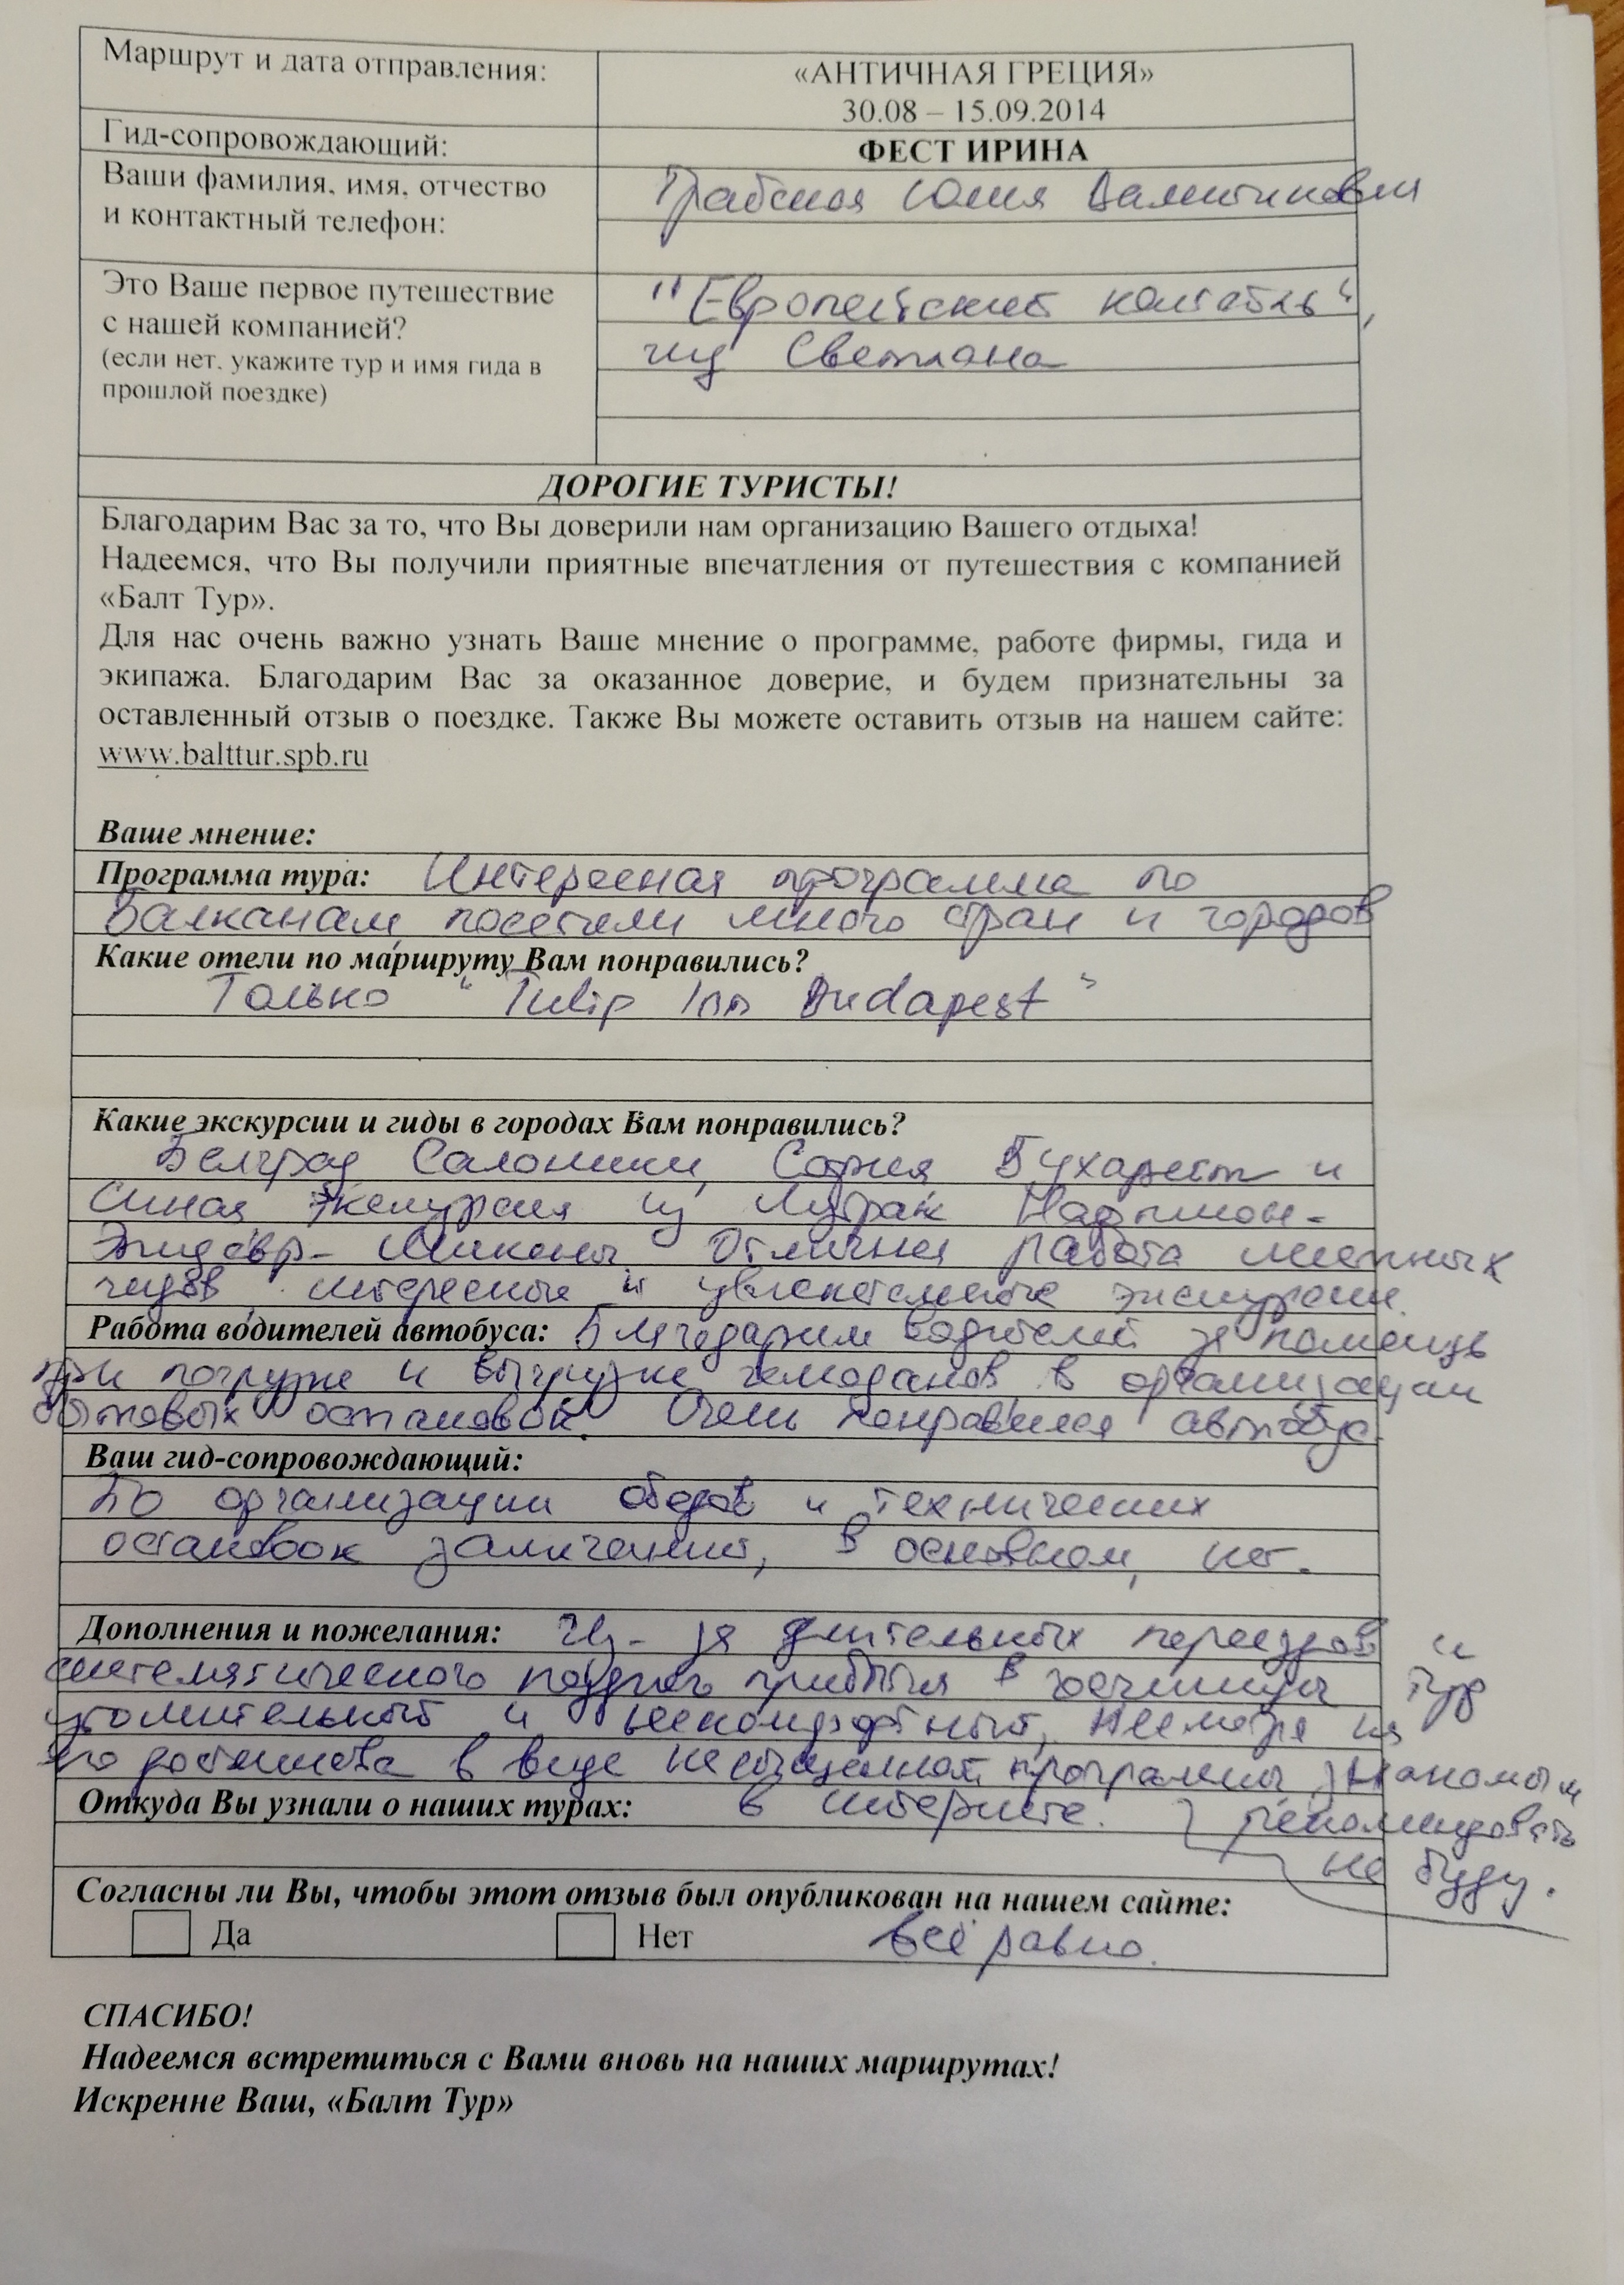 Маршрут и дата отправления:
«АНТИЧНАЯ ГРЕЦИЯ»
30.08 – 15.09.2014
Гид-сопровождающий:
ФЕСТ ИРИНА
Ваши фамилия, имя, отчество
и контактный телефон:
Юлия Валентиновна
Это Ваше первое путешествие
с нашей компанией?
(если нет, укажите тур и имя гида в
прошлой поездке)
"Европейский коктейль",
гид Светлана
ДОРОГИЕ ТУРИСТЫ!
Благодарим Вас за то, что Вы доверили нам организацию Вашего отдыха!
Надеемся, что Вы получили приятные впечатления от путешествия с компанией
«Балт Тур».
Для нас очень важно узнать Ваше мнение о программе, работе фирмы, гида и
экипажа. Благодарим Вас за оказанное доверие, и будем признательны за
оставленный отзыв о поездке. Также Вы можете оставить отзыв на нашем сайте:
www.balttur.spb.ru
Ваше мнение:
Программа тура: Интересная программа по
Балканам, посетили много стран и городов
Какие отели по маршруту Вам понравились?
Только "Tulip Inn Budapest"
Какие экскурсии и гиды в городах Вам понравились?
Белград Салоники, София Бухарест и
Синая Экскурсия из Лутраки Нафплион-
Эпидавр- Микены. Отличная работа местных
гидов интересные и увлекательные экскурсии.
Работа водителей автобуса: Благодарим водителей за помощь
при погрузке и выгрузке чемоданов, в организации
бытовых остановок. Очень понравился автобус.
Ваш гид-сопровождающий:
По организации обедов и технических
остановок замечаний, в основном, нет.
Дополнения и пожелания: Из-за длительных переездов и
систематического позднего прибытия в гостиницы тур
утомительный и некомфортный, несмотря на
его достоинства в виде насыщенной программы знакомым
рекомендовать
не буду.
Откуда Вы узнали о наших турах: в интернете.
Согласны ли Вы, чтобы этот отзыв был опубликован на нашем сайте:
Да Нет всё равно.
СПАСИБО!
Надеемся встретиться с Вами вновь на наших маршрутах!
Искренне Ваш, «Балт Тур»